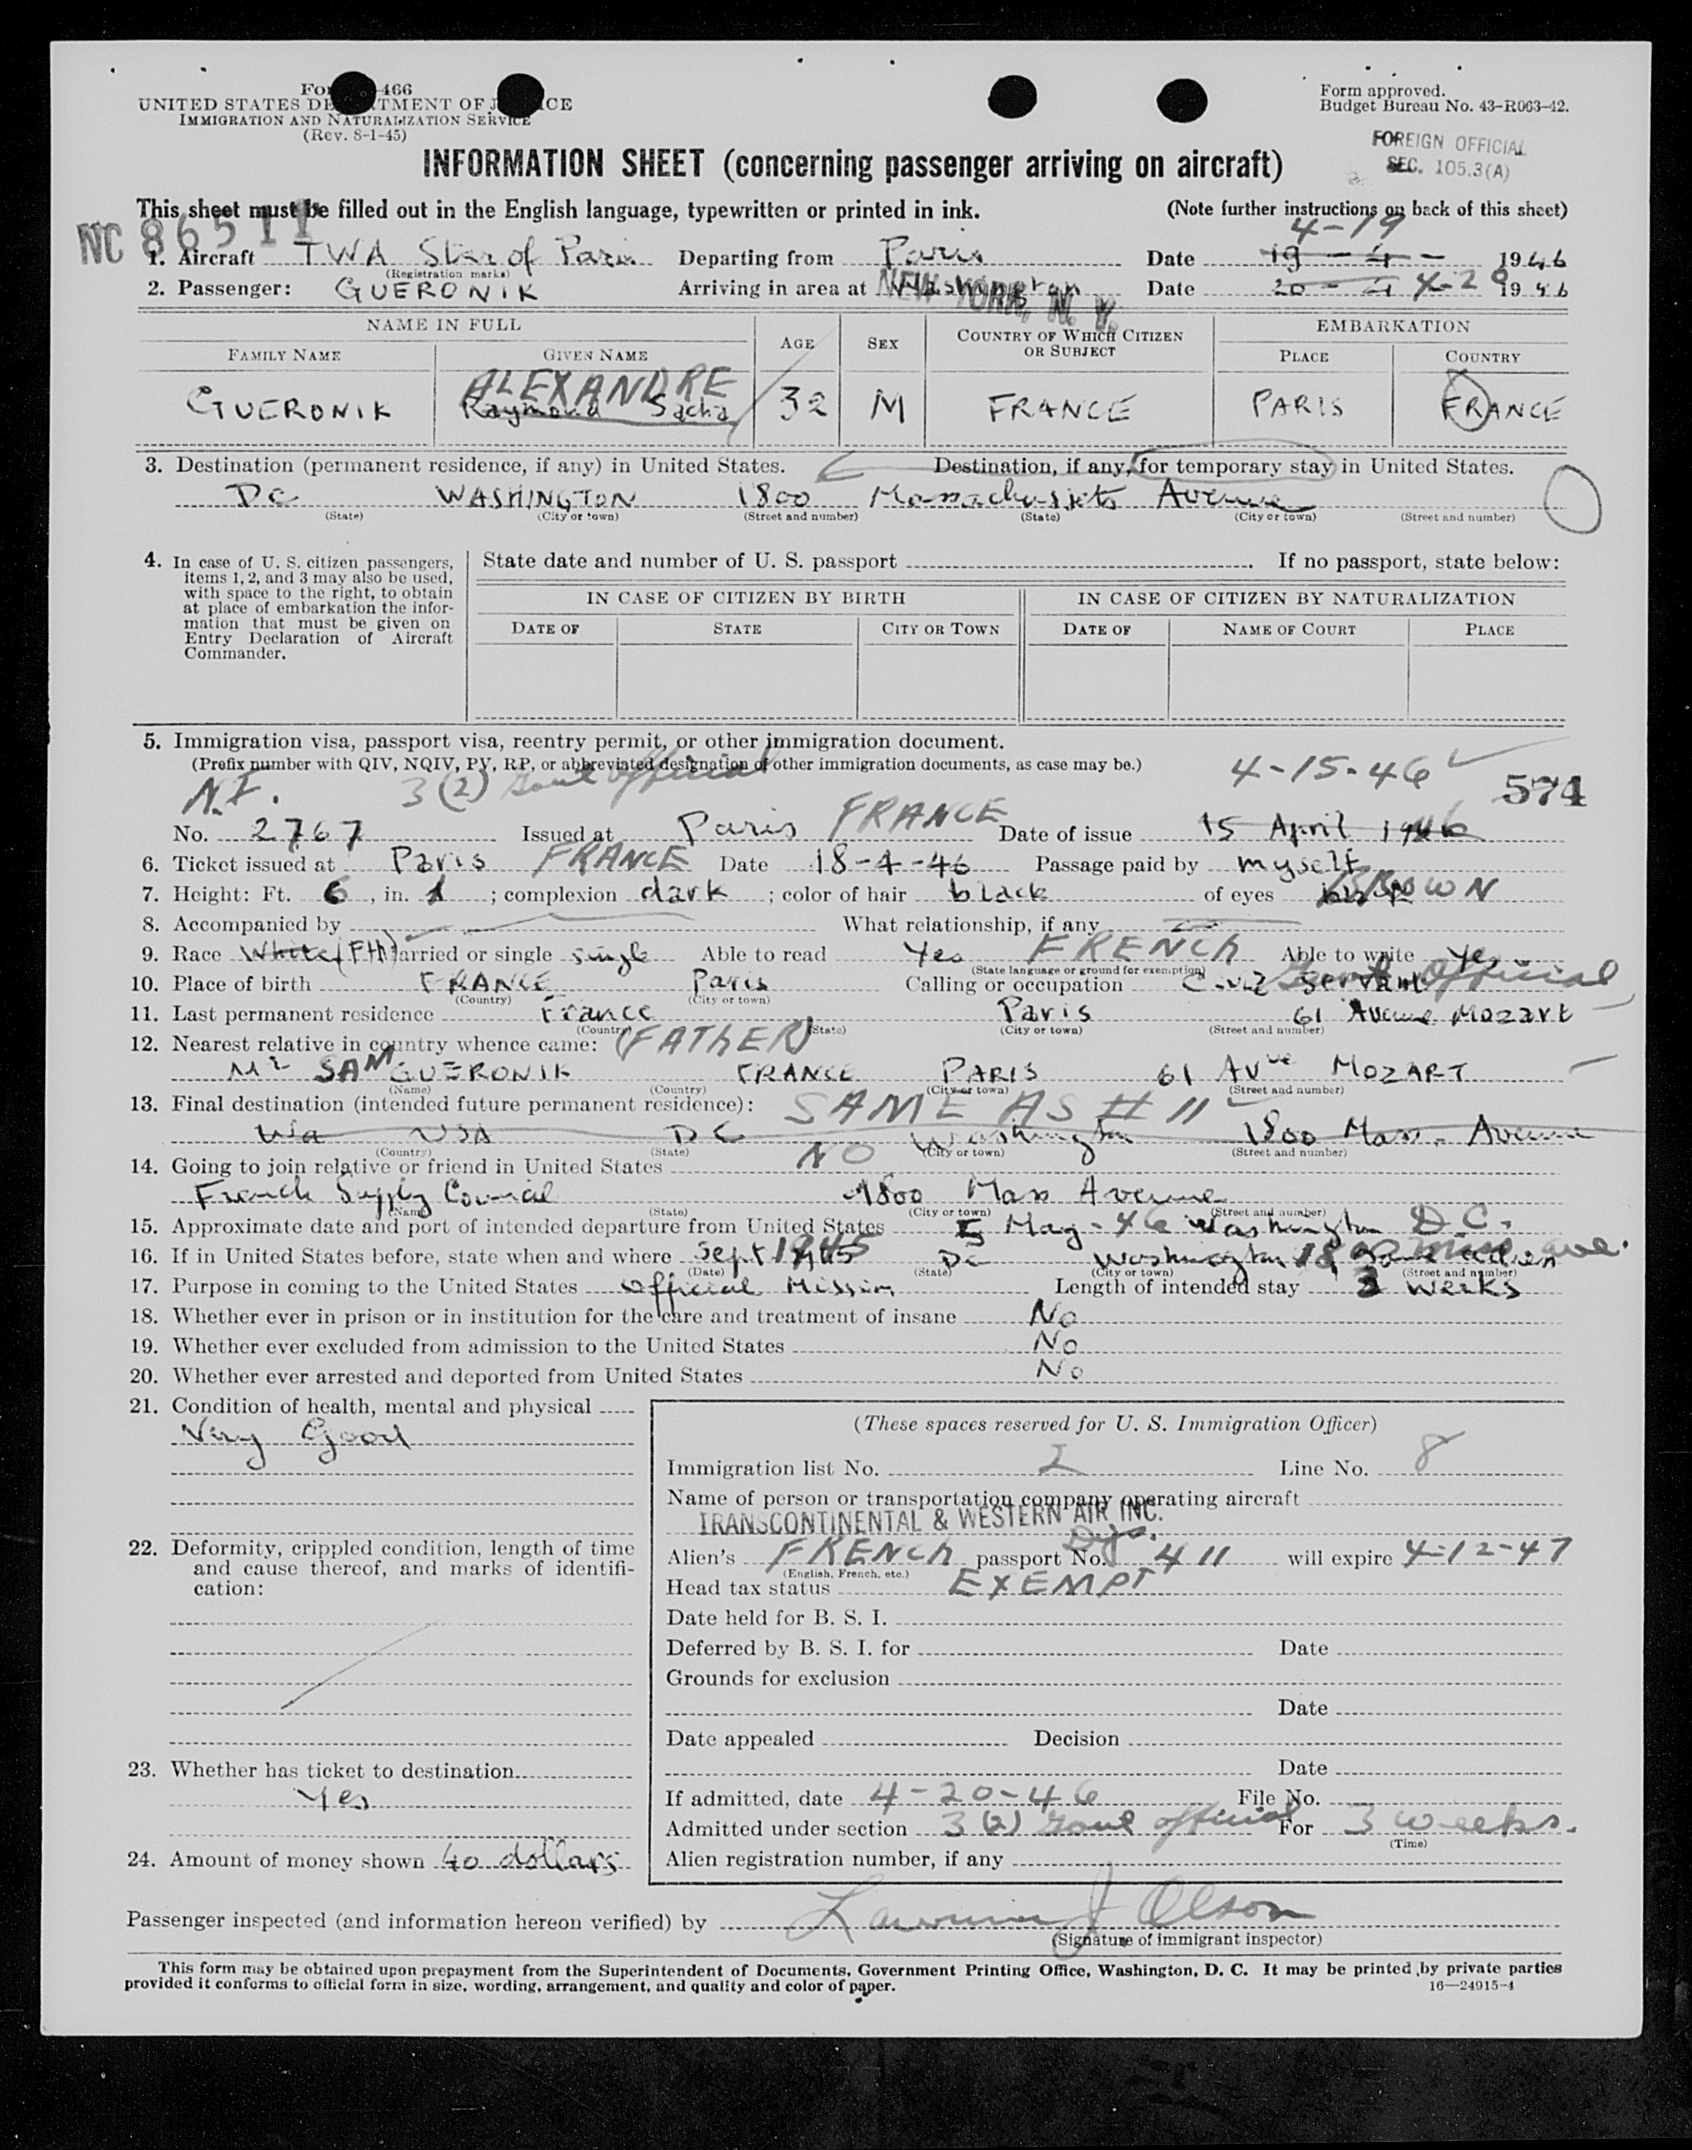 Form 466
UNITED STATES DEPARTMENT OF JUSTICE
IMMIGRATION AND NATURALIZATION SERVICE
(Rev. 8-1-45)
Form approved.
Budget Bureau No. 43-R063-42.
FOREIGN OFFICIAL
SEC. 105.3(A)
INFORMATION SHEET (concerning passenger arriving on aircraft)
This sheet must be filled out in the English language, typewritten or printed in ink. (Note further instructions on back of this sheet)
NC 86511
4-19
1. Aircraft TWA Star of Paris Departing from Paris Date 19-4- 1946
(Registration marks)
2. Passenger: GUERONIK Arriving in area at Washington NEW YORK, N. Y. Date 20-4 4-20 1946
NAME IN FULL AGE SEX COUNTRY OF WHICH CITIZEN OR SUBJECT EMBARKATION
FAMILY NAME GIVEN NAME PLACE COUNTRY
ALEXANDRE
GUERONIK Raymond Sacha 32 M FRANCE PARIS FRANCE
3. Destination (permanent residence, if any) in United States. Destination, if any, for temporary stay in United States.
DC WASHINGTON 1800 Massachusets Avenue
(State) (City or town) (Street and number) (State) (City or town) (Street and number)
4. In case of U. S. citizen passengers, items 1, 2, and 3 may also be used, with space to the right, to obtain at place of embarkation the information that must be given on Entry Declaration of Aircraft Commander.
State date and number of U. S. passport If no passport, state below:
IN CASE OF CITIZEN BY BIRTH IN CASE OF CITIZEN BY NATURALIZATION
DATE OF STATE CITY OR TOWN DATE OF NAME OF COURT PLACE
5. Immigration visa, passport visa, reentry permit, or other immigration document.
(Prefix number with QIV, NQIV, PV, RP, or abbreviated designation of other immigration documents, as case may be.)
N.I. 3(2) Govt official 4-15-46 574
No. 2767 Issued at Paris FRANCE Date of issue 15 April 1946
6. Ticket issued at Paris FRANCE Date 18-4-46 Passage paid by myself
7. Height: Ft. 6, in. 1; complexion dark; color of hair black of eyes BROWN
8. Accompanied by What relationship, if any
9. Race White (FH) Married or single single Able to read Yes FRENCH Able to write Yes
(State language or ground for exemption)
10. Place of birth FRANCE Paris Calling or occupation Civil Servant Govt Official
(Country) (City or town)
11. Last permanent residence France Paris 61 Avenue Mozart
(Country) (State) (City or town) (Street and number)
12. Nearest relative in country whence came: (FATHER)
Mr SAM GUERONIK FRANCE PARIS 61 Avue MOZART
(Name) (Country) (City or town) (Street and number)
13. Final destination (intended future permanent residence): SAME AS # 11
Wa USA DC Washington 1800 Mass. Avenue
(Country) (State) (City or town) (Street and number)
14. Going to join relative or friend in United States NO
French Supply Council 1800 Mass Avenue
(Name) (State) (City or town) (Street and number)
15. Approximate date and port of intended departure from United States 5 May-46 Washington D.C.
16. If in United States before, state when and where Sept 1945 DC Washington 1800 Mass ave.
(Date) (State) (City or town) (Street and number)
17. Purpose in coming to the United States Official Mission Length of intended stay 3 weeks
18. Whether ever in prison or in institution for the care and treatment of insane No
19. Whether ever excluded from admission to the United States No
20. Whether ever arrested and deported from United States No
21. Condition of health, mental and physical
Very Good
22. Deformity, crippled condition, length of time and cause thereof, and marks of identification:
23. Whether has ticket to destination
Yes
24. Amount of money shown 40 dollars
(These spaces reserved for U. S. Immigration Officer)
Immigration list No. 2 Line No. 8
Name of person or transportation company operating aircraft
TRANSCONTINENTAL & WESTERN AIR INC.
Dip.
Alien's FRENCH passport No. 411 will expire 4-12-47
(English, French, etc.)
Head tax status EXEMPT
Date held for B. S. I.
Deferred by B. S. I. for Date
Grounds for exclusion
Date
Date appealed Decision
Date
If admitted, date 4-20-46 File No.
Admitted under section 3(2) Govt official For 3 weeks.
(Time)
Alien registration number, if any
Passenger inspected (and information hereon verified) by Lawrence J Olson
(Signature of immigrant inspector)
This form may be obtained upon prepayment from the Superintendent of Documents, Government Printing Office, Washington, D. C. It may be printed by private parties
provided it conforms to official form in size, wording, arrangement, and quality and color of paper. 16—24915-4